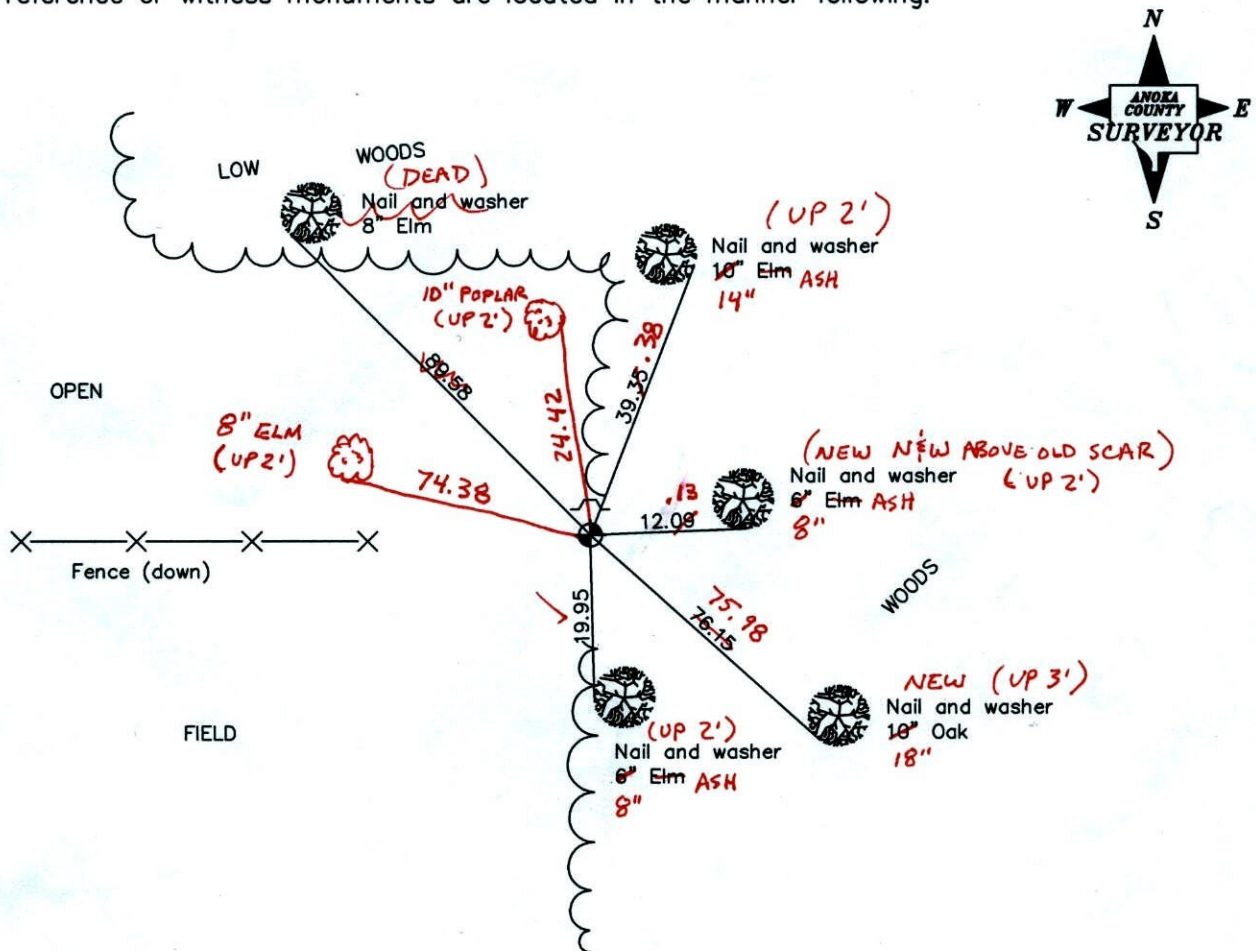 reference or witness monuments are located in the manner following:
N
W ANOKA COUNTY E
SURVEYOR
S
LOW
WOODS
(DEAD)
Nail and washer
8" Elm
(UP 2')
Nail and washer
10" Elm ASH
14"
10" POPLAR
(UP 2')
89.58
24.42
39.35 .38
OPEN
8" ELM
(UP 2')
74.38
(NEW N&W ABOVE OLD SCAR)
Nail and washer (UP 2')
6" Elm ASH
8"
.13
12.09
Fence (down)
WOODS
19.95
75.98
76.15
NEW (UP 3')
Nail and washer
10" Oak
18"
FIELD
(UP 2')
Nail and washer
6" Elm ASH
8"